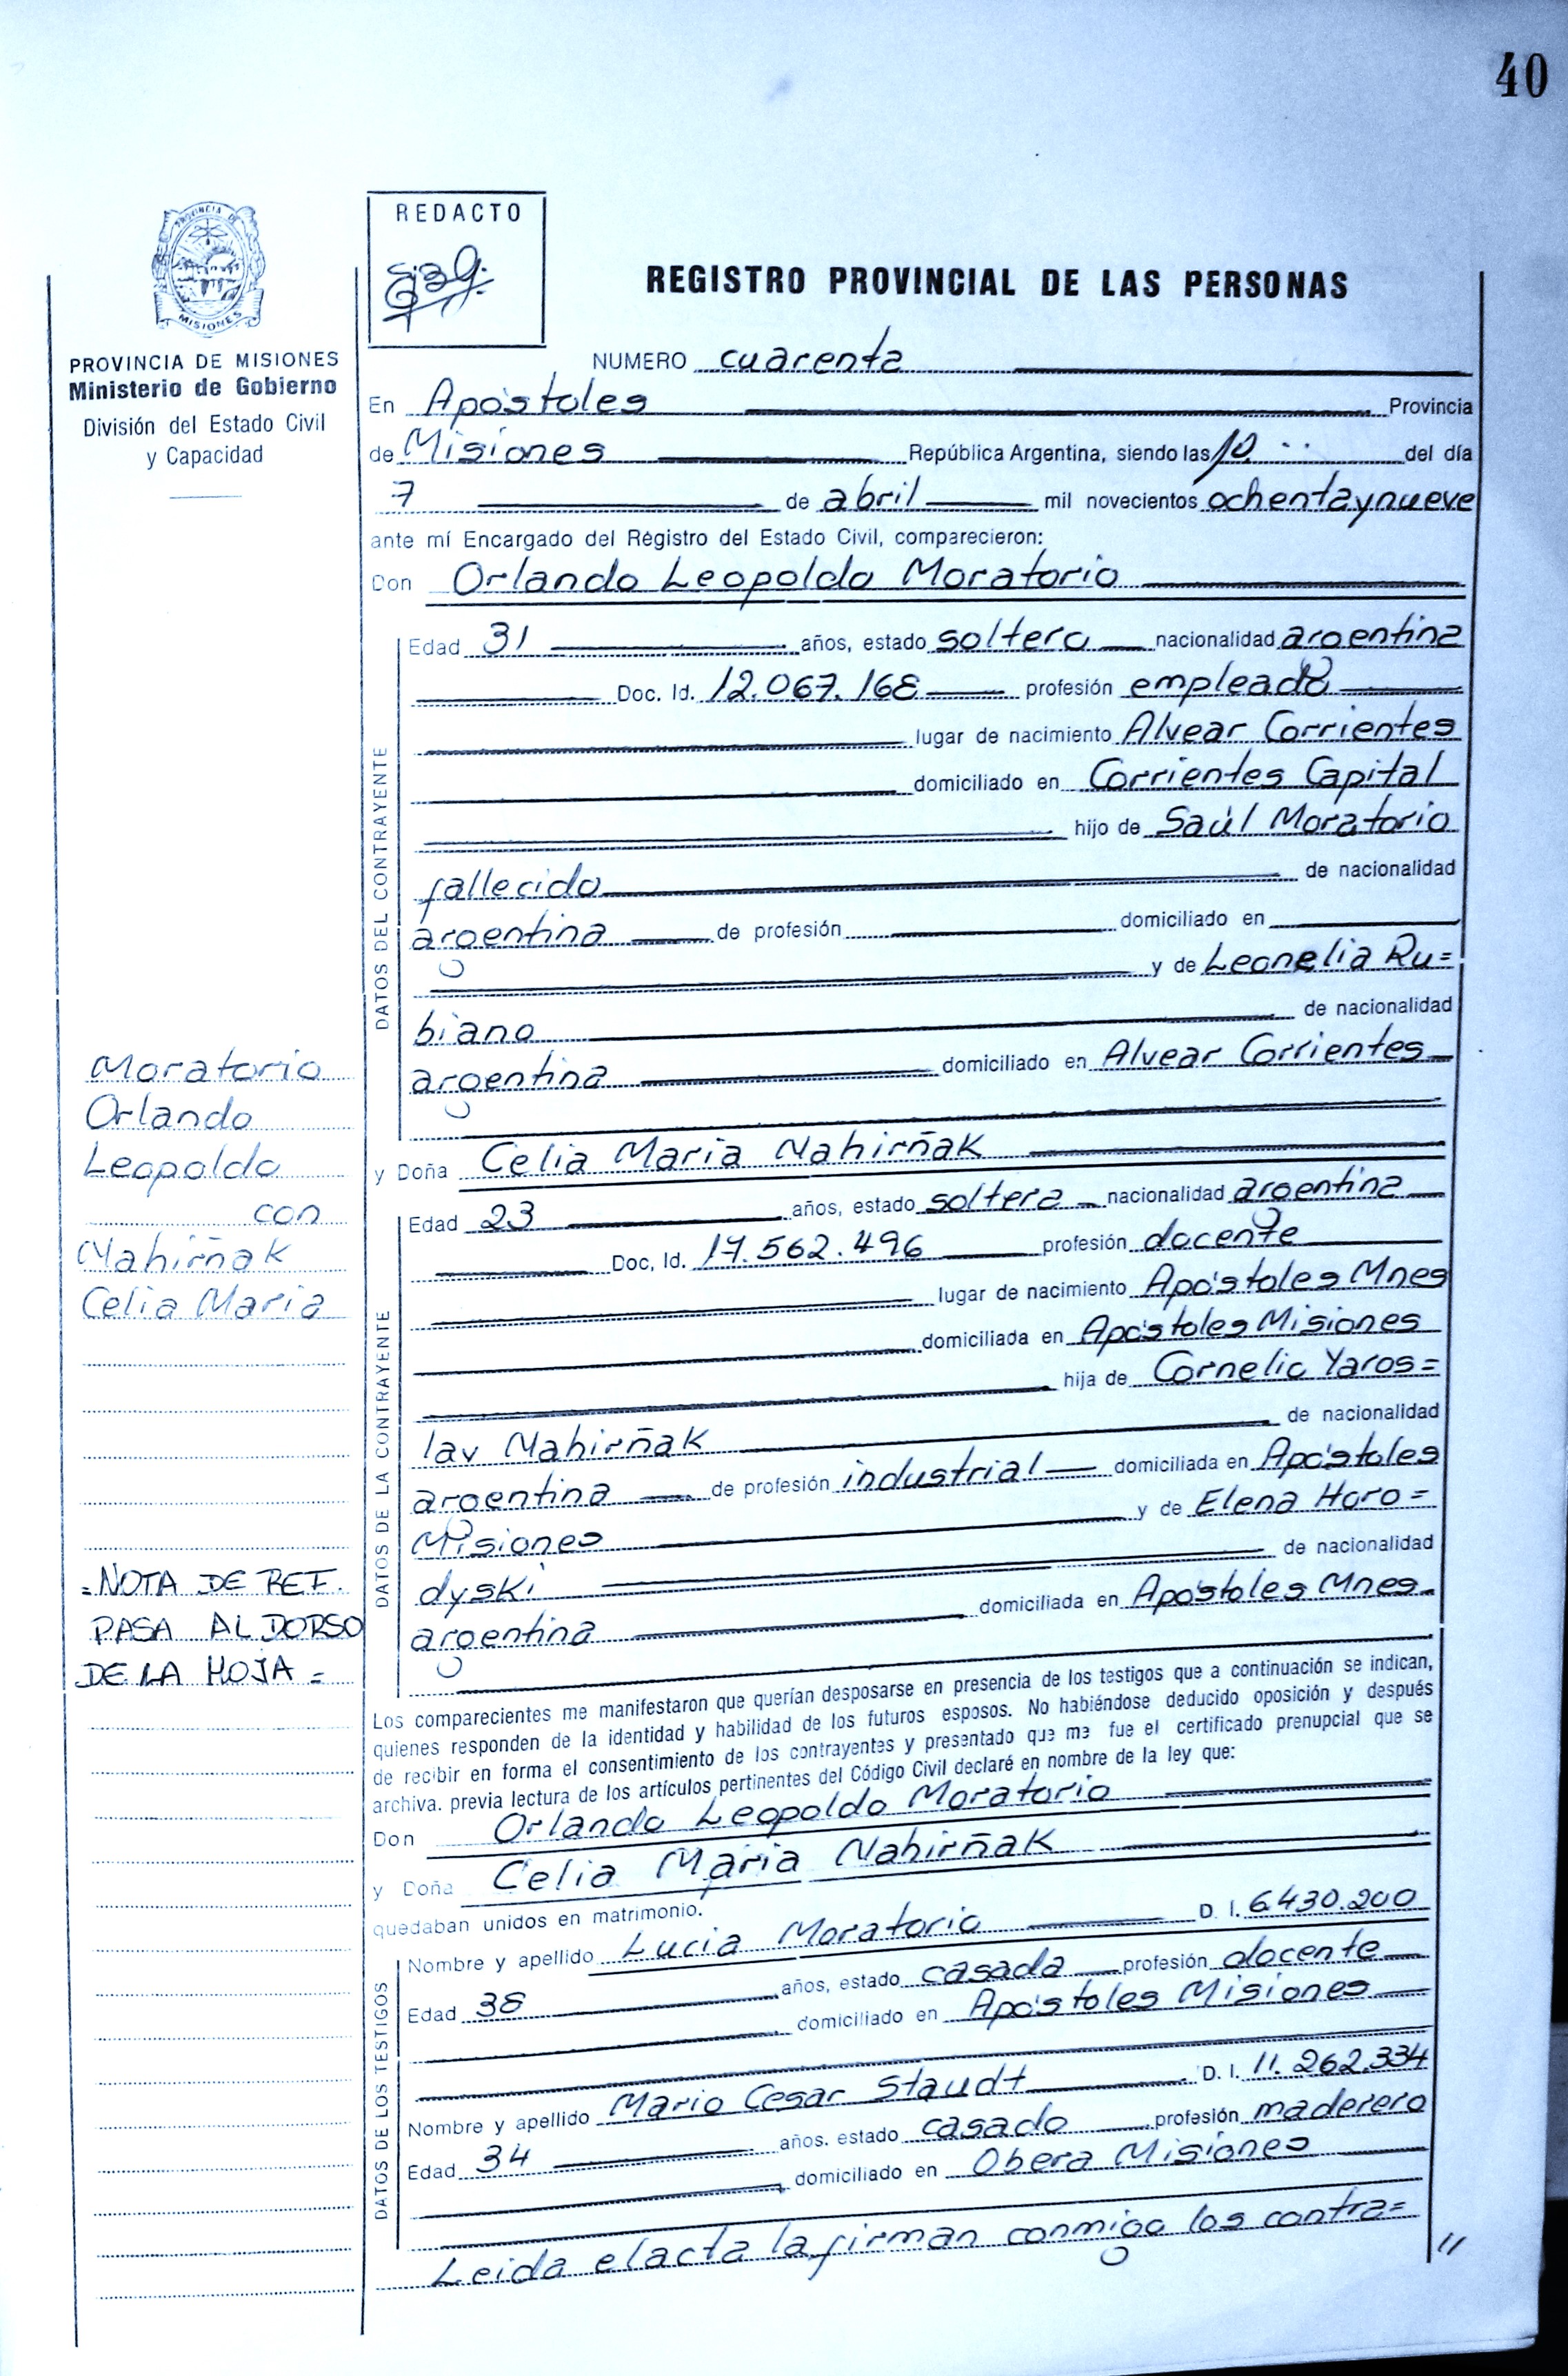 40
PROVINCIA DE
MISIONES
PROVINCIA DE MISIONES
Ministerio de Gobierno
División del Estado Civil
y Capacidad
REDACTO
REGISTRO PROVINCIAL DE LAS PERSONAS
NUMERO cuarenta
En Apóstoles Provincia
de Misiones República Argentina, siendo las 10 del día
7 de abril mil novecientos ochentaynueve
ante mí Encargado del Registro del Estado Civil, comparecieron:
Don Orlando Leopoldo Moratorio
DATOS DEL CONTRAYENTE
Edad 31 años, estado soltero nacionalidad argentina
Doc. Id. 12.067.168 profesión empleado
lugar de nacimiento Alvear Corrientes
domiciliado en Corrientes Capital
hijo de Saúl Moratorio
fallecido de nacionalidad
argentina de profesión domiciliado en
y de Leonelia Ru=
biano de nacionalidad
argentina domiciliado en Alvear Corrientes
y Doña Celia Maria Nahirñak
DATOS DE LA CONTRAYENTE
Edad 23 años, estado soltera nacionalidad argentina
Doc, Id. 17.562.496 profesión docente
lugar de nacimiento Apóstoles Mnes
domiciliada en Apóstoles Misiones
hija de Cornelio Yaros=
lav Nahirñak de nacionalidad
argentina de profesión industrial domiciliada en Apóstoles
Misiones y de Elena Horo=
dyski de nacionalidad
argentina domiciliada en Apóstoles Mnes
Moratorio
Orlando
Leopoldo
con
Nahirñak
Celia Maria
=NOTA DE REF.
PASA AL DORSO
DE LA HOJA=
Los comparecientes me manifestaron que querían desposarse en presencia de los testigos que a continuación se indican,
quienes responden de la identidad y habilidad de los futuros esposos. No habiéndose deducido oposición y después
de recibir en forma el consentimiento de los contrayentes y presentado que me fue el certificado prenupcial que se
archiva. previa lectura de los artículos pertinentes del Código Civil declaré en nombre de la ley que:
Don Orlando Leopoldo Moratorio
y Doña Celia Maria Nahirñak
quedaban unidos en matrimonio.
DATOS DE LOS TESTIGOS
Nombre y apellido Lucia Moratorio D. I. 6.430.200
Edad 38 años, estado casada profesión docente
domiciliado en Apóstoles Misiones
Nombre y apellido Mario Cesar Staudt D. I. 11.262.334
Edad 34 años. estado casado profesión maderero
domiciliado en Obera Misiones
Leida el acta la firman conmigo los contra=
//